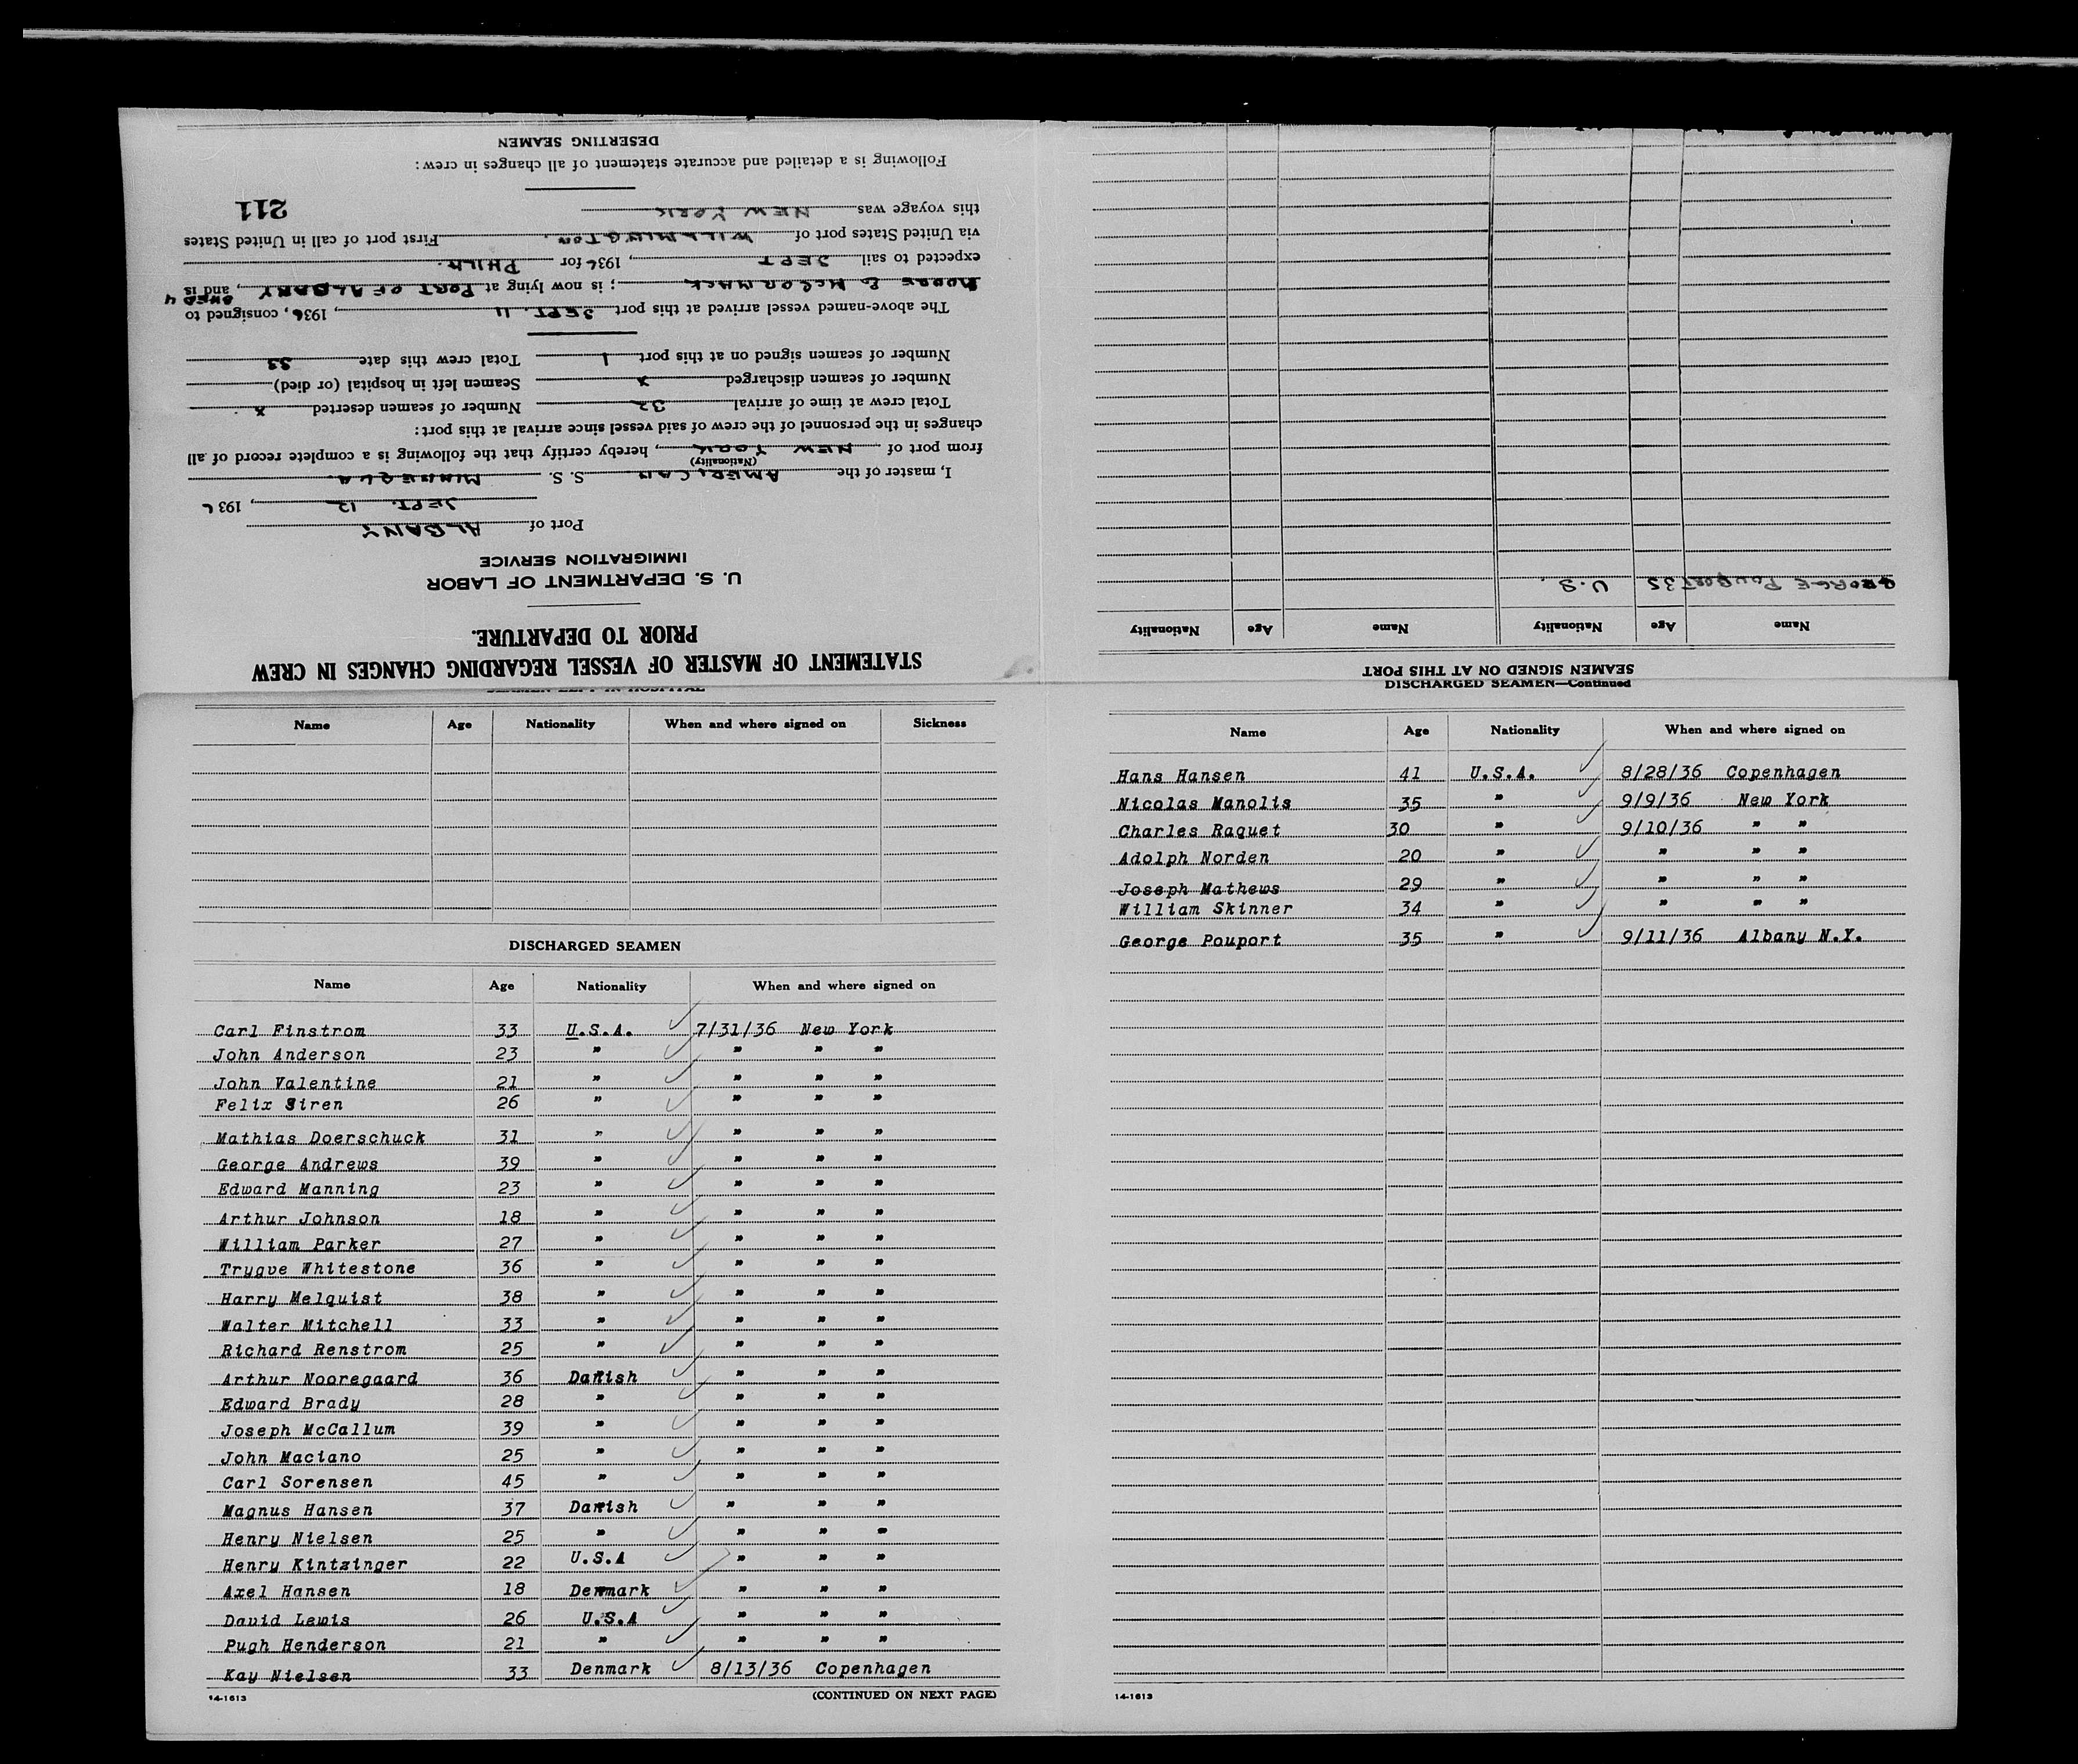 STATEMENT OF MASTER OF VESSEL REGARDING CHANGES IN CREW
PRIOR TO DEPARTURE.
U. S. DEPARTMENT OF LABOR
IMMIGRATION SERVICE
Port of ALBANY
SEPT. 12, 1936
I, master of the AMERICAN S. S. MINNEQUA
(Nationality)
from port of NEW YORK, hereby certify that the following is a complete record of all
changes in the personnel of the crew of said vessel since arrival at this port:
Total crew at time of arrival 32 Number of seamen deserted x
Number of seamen discharged x Seamen left in hospital (or died)
Number of seamen signed on at this port 1 Total crew this date 33
The above-named vessel arrived at this port SEPT. 11, 1936, consigned to
MOORE & McCORMACK; is now lying at PORT OF ALBANY, and is
expected to sail SEPT, 1936 for PHILA.
via United States port of WILLMINGTON. First port of call in United States
this voyage was NEW YORK
211
Following is a detailed and accurate statement of all changes in crew:
DESERTING SEAMEN
SEAMEN SIGNED ON AT THIS PORT
Name Age Nationality Name Age Nationality
GEORGE POUPORT 35 U.S.
Name Age Nationality When and where signed on Sickness
DISCHARGED SEAMEN
Name Age Nationality When and where signed on
Carl Finstrom 33 U.S.A. 7/31/36 New York
John Anderson 23 " " " "
John Valentine 21 " " " "
Felix Siren 26 " " " "
Mathias Doerschuck 31 " " " "
George Andrews 39 " " " "
Edward Manning 23 " " " "
Arthur Johnson 18 " " " "
William Parker 27 " " " "
Trygve Whitestone 36 " " " "
Harry Melquist 38 " " " "
Walter Mitchell 33 " " " "
Richard Renstrom 25 " " " "
Arthur Nooregaard 36 Danish " " "
Edward Brady 28 " " " "
Joseph McCallum 39 " " " "
John Maciano 25 " " " "
Carl Sorensen 45 " " " "
Magnus Hansen 37 Danish " " "
Henry Nielsen 25 " " " "
Henry Kintzinger 22 U.S.A " " "
Axel Hansen 18 Denmark " " "
David Lewis 26 U.S.A " " "
Pugh Henderson 21 " " " "
Kay Nielsen 33 Denmark 8/13/36 Copenhagen
14-1613 (CONTINUED ON NEXT PAGE)
DISCHARGED SEAMEN—Continued
Name Age Nationality When and where signed on
Hans Hansen 41 U.S.A. 8/28/36 Copenhagen
Nicolas Manolis 35 " 9/9/36 New York
Charles Raquet 30 " 9/10/36 " "
Adolph Norden 20 " " " "
Joseph Mathews 29 " " " "
William Skinner 34 " " " "
George Pouport 35 " 9/11/36 Albany N.Y.
14-1613